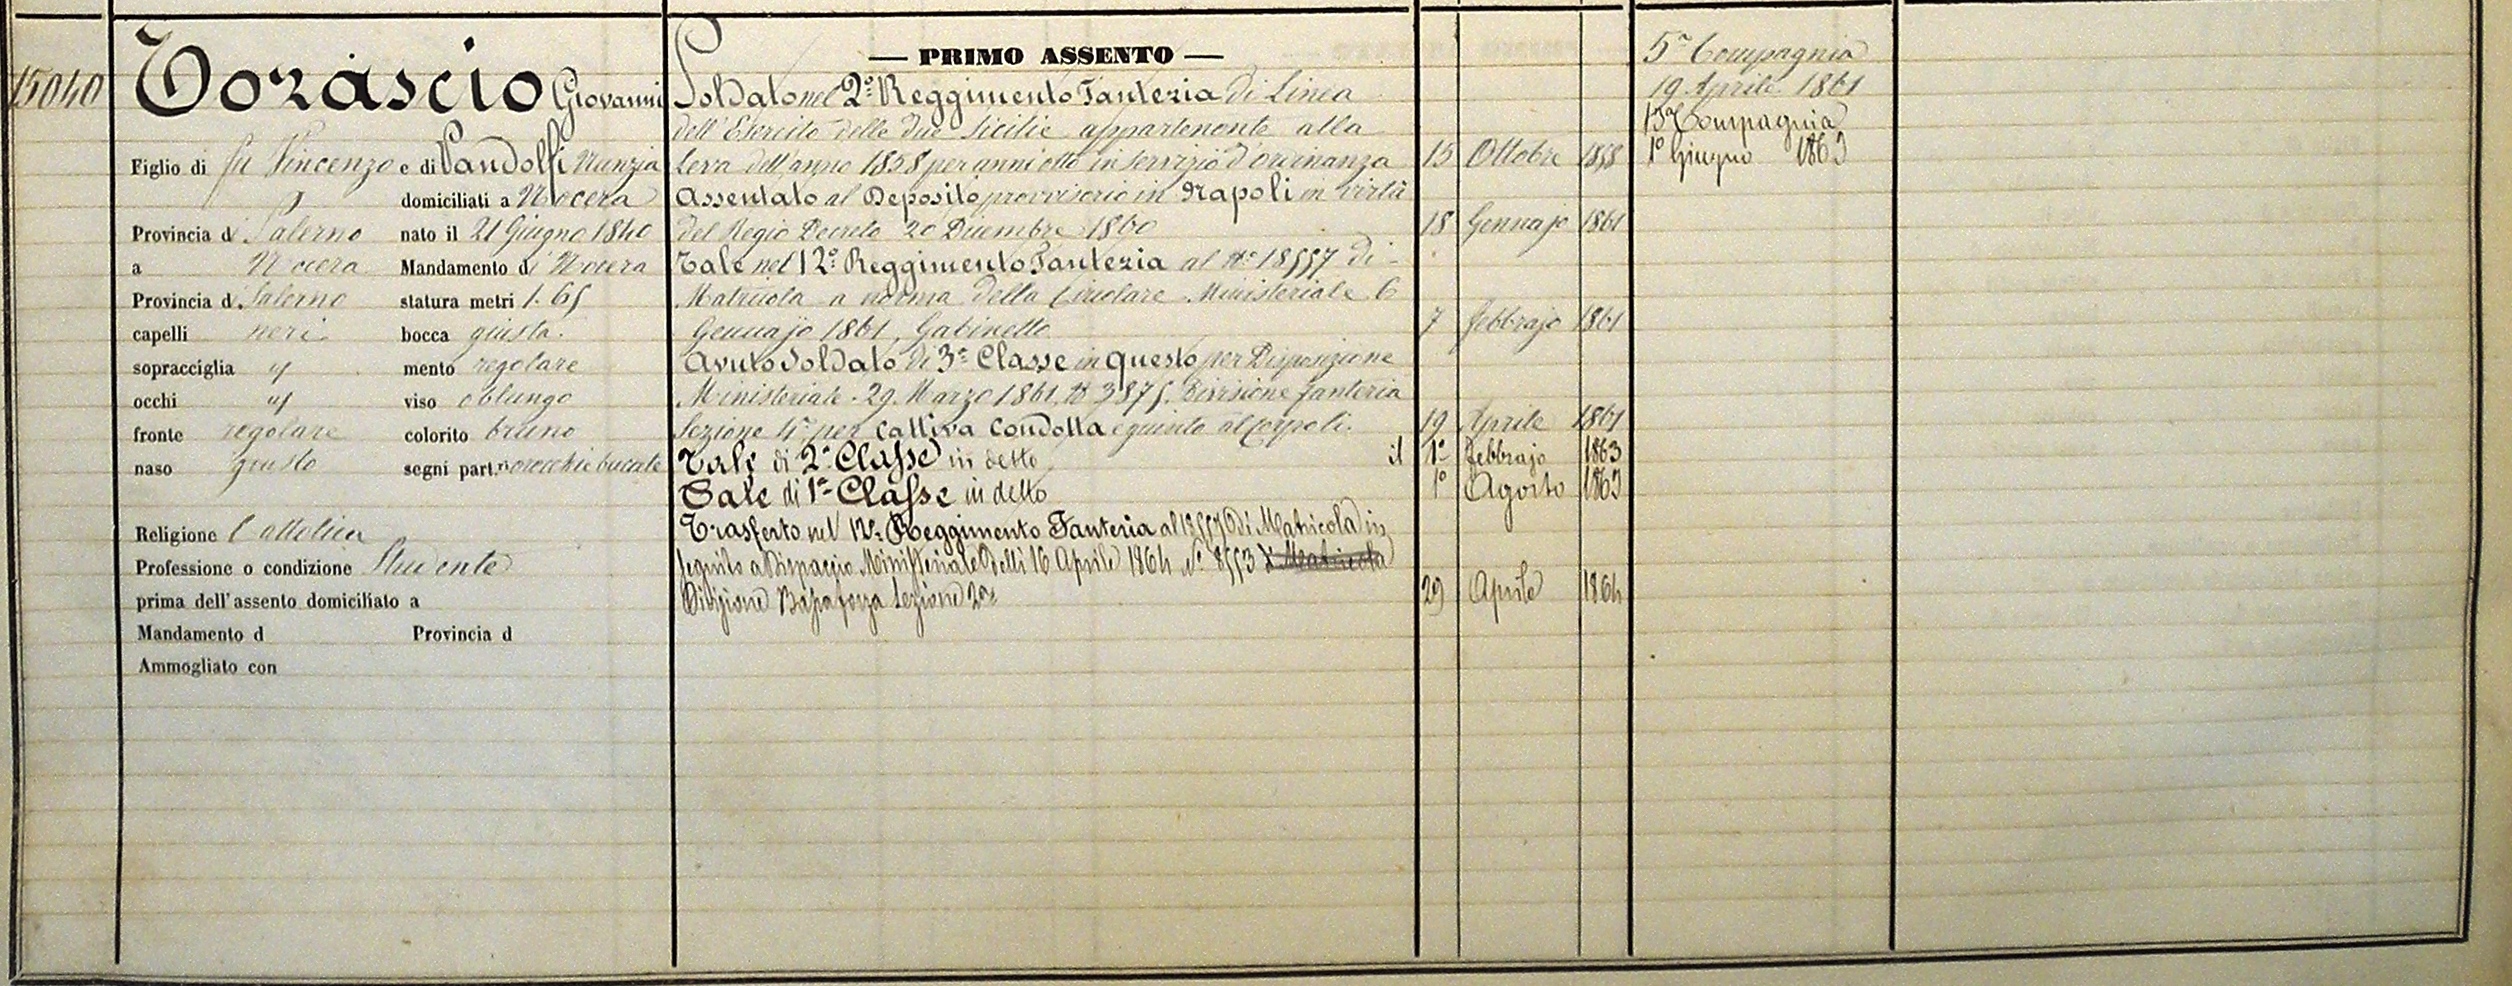 15040
Torascio Giovanni
Figlio di fu Vincenzo e di Pandolfi Nunzia
domiciliati a Nocera
Provincia di Salerno nato il 21 Giugno 1840
a Nocera Mandamento di Nocera
Provincia di Salerno statura metri 1.65
capelli neri bocca giusta
sopracciglia id mento regolare
occhi id viso oblungo
fronte regolare colorito bruno
naso giusto segni part. orecchie bucate
Religione Cattolica
Professione o condizione Studente
prima dell'assento domiciliato a
Mandamento d Provincia d
Ammogliato con
— PRIMO ASSENTO —
Soldato nel 2º Reggimento Fanteria di Linea
dell'Esercito delle due Sicilie appartenente alla
Leva dell'anno 1858 per anni otto in servizio d'ordinanza 15 Ottobre 1858
Assentato al Deposito provvisorio in Napoli in virtù
del Regio Decreto 20 Dicembre 1860 18 Gennajo 1861
Tale nel 12º Reggimento Fanteria al Nº 18557 di
Matricola a norma della Circolare Ministeriale 6
Gennajo 1861, Gabinetto 7 Febbrajo 1861
Avuto Soldato di 3ª Classe in questo per Disposizione
Ministeriale 29 Marzo 1861 Nº 3875 Divisione fanteria
Sezione 4ª per Cattiva Condotta e giunto al Corpo li 19 Aprile 1861
Tale di 2ª Classe in detto il 1º Febbrajo 1863
Tale di 1ª Classe in detto 1º Agosto 1863
Trasferto nel 12º Reggimento Fanteria al 18557 di Matricola in
seguito a Dispaccio Ministeriale delli 16 Aprile 1864 Nº 8553 di Matricola
Divisione Bassa forza Sezione 2ª 29 Aprile 1864
5ª Compagnia
19 Aprile 1861
13ª Compagnia
1º Giugno 1863